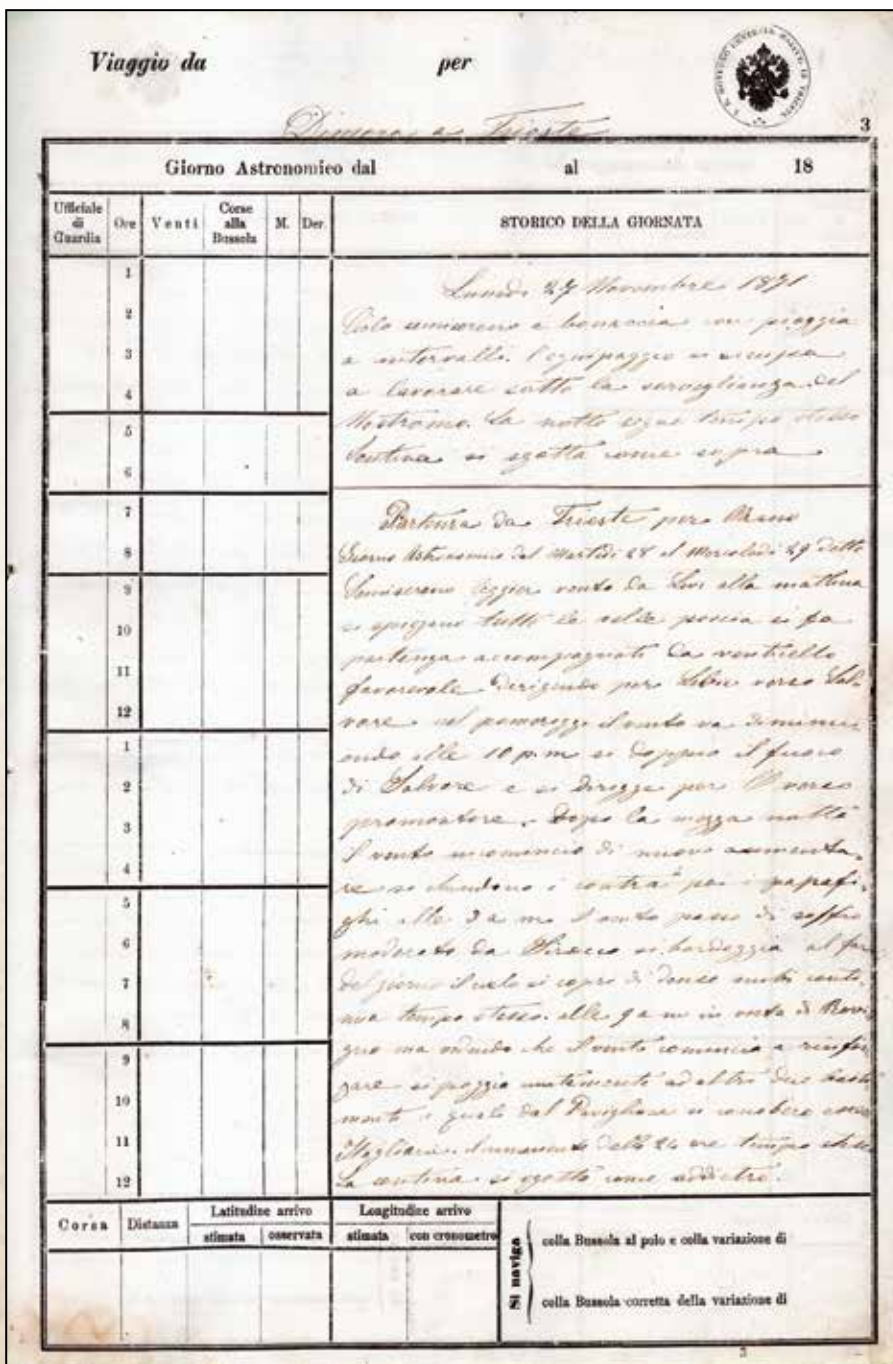 Viaggio da per
Dimora a Trieste
3
Giorno Astronomico dal al 18
Ufficiale di Guardia Ore Venti Corse alla Bussola M. Der. STORICO DELLA GIORNATA
1
2
3
4
5
6
7
8
9
10
11
12
1
2
3
4
5
6
7
8
9
10
11
12
Lunedi 27 Novembre 1871
semisereno e bonaccia con pioggia
a intervalli. l'equipaggio si occupa
a lavorare sotto la sorveglianza del
Nostromo. La notte segue tempo stesso
Sentina si sgotta come sopra
Partenza da Trieste per
Giorno Astronomico dal Martedi 28 al Mercoledi 29 detto
Semisereno leggier vento da alla mattina
si spiegano tutte le vele poscia si fa
partenza accompagnati da venticello
favorevole dirigendo per verso Sal-
vore nel pomeriggio il vento va diminu
endo alle 10 p.m si doppio il fuoco
di Salvore e si dirigge per verso
promontore. Dopo la mezza notte
il vento incomincio di nuovo aumenta-
re si chiudono i contra poi i papafi-
ghi alle 3 a m il vento passo di soffio
moderato da Sirocco si bordeggia al far
del giorno il cielo si copre di dense nubi conti-
nua tempo stesso. alle 9 a m in vista di Rovi-
gno ma vedendo che il vento comincia a rinfor-
zare si poggio unitamente ad altri due basti-
menti i quale dal Paviglione si conobbero
Italiani. il rimanente delle 24 ore tempo stesso
La sentina si sgotto come addietro.
Corsa Distanza Latitudine arrivo Longitudine arrivo
stimata osservata stimata con cronometro
Si naviga
colla Bussola al polo e colla variazione di
colla Bussola corretta della variazione di